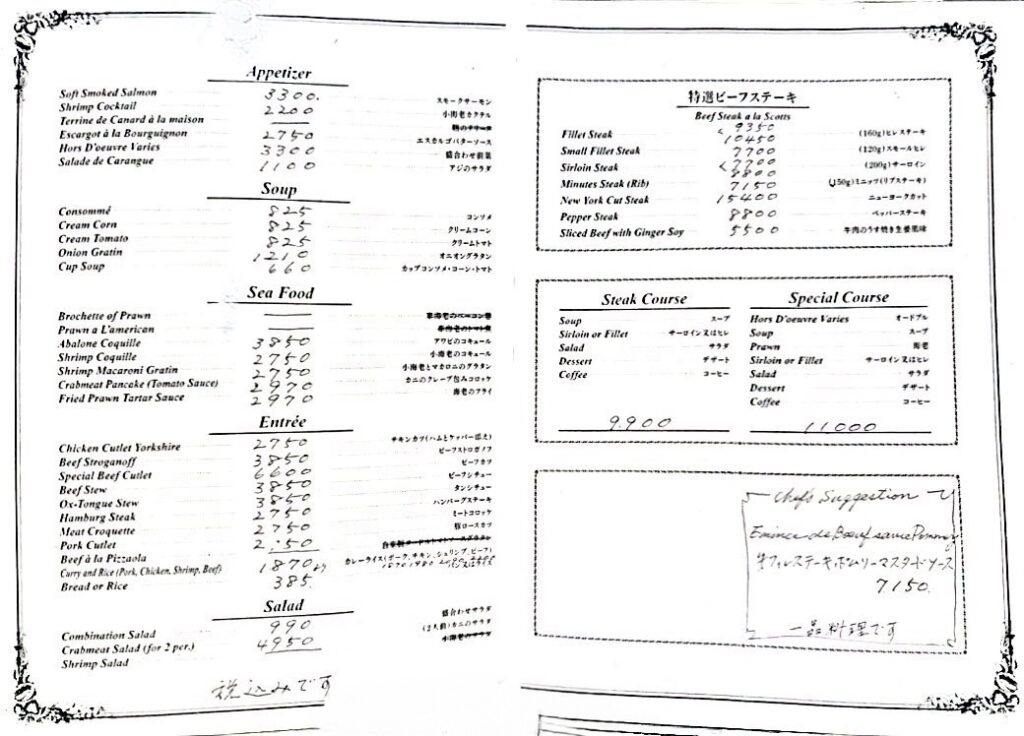 Appetizer
Soft Smoked Salmon 3300. スモークサーモン
Shrimp Cocktail 2200 小海老カクテル
Terrine de Canard à la maison
Escargot à la Bourguignon 2750 エスカルゴバターソース
Hors D'oeuvre Varies 3300 盛合わせ前菜
Salade de Carangue 1100 アジのサラダ
Soup
Consommé 825 コンソメ
Cream Corn 825 クリームコーン
Cream Tomato 825 クリームトマト
Onion Gratin 1210 オニオングラタン
Cup Soup 660 カップコンソメ・コーン・トマト
Sea Food
Brochette of Prawn
Prawn a L'american
Abalone Coquille 3850 アワビのコキュール
Shrimp Coquille 2750 小海老のコキュール
Shrimp Macaroni Gratin 2750 小海老とマカロニのグラタン
Crabmeat Pancake (Tomato Sauce) 2970 カニのクレープ包みコロッケ
Fried Prawn Tartar Sauce 2970 海老のフライ
Entrée
Chicken Cutlet Yorkshire 2750 チキンカツ(ハムとケッパー添え)
Beef Stroganoff 3850 ビーフストロガノフ
Special Beef Cutlet 6600 ビーフカツ
Beef Stew 3850 ビーフシチュー
Ox-Tongue Stew 3850 タンシチュー
Hamburg Steak 2750 ハンバーグステーキ
Meat Croquette 2750 ミートコロッケ
Pork Cutlet 2750 豚ロースカツ
Beef à la Pizzaola
Curry and Rice (Pork, Chicken, Shrimp, Beef) 1870 カレーライス(ポーク、チキン、シュリンプ、ビーフ)
1870 1980
Bread or Rice 385. パン又はライス
Salad
Combination Salad 990 盛合わせサラダ
Crabmeat Salad (for 2 per.) 4950 (2人前)カニのサラダ
Shrimp Salad 小海老のサラダ
税込みです
特選ビーフステーキ
Beef Steak a la Scotts
9350
Fillet Steak 10450 (160g)ヒレステーキ
Small Fillet Steak 7700 (120g)スモールヒレ
7700
Sirloin Steak 8800 (200g)サーロイン
Minutes Steak (Rib) 7150 (150g)ミニッツ(リブステーキ)
New York Cut Steak 15400 ニューヨークカット
Pepper Steak 8800 ペッパーステーキ
Sliced Beef with Ginger Soy 5500 牛肉のうす焼き生姜風味
Steak Course
Soup スープ
Sirloin or Fillet サーロイン又はヒレ
Salad サラダ
Dessert デザート
Coffee コーヒー
9.900
Special Course
Hors D'oeuvre Varies オードブル
Soup スープ
Prawn 海老
Sirloin or Fillet サーロイン又はヒレ
Salad サラダ
Dessert デザート
Coffee コーヒー
11,000
Chef's Suggestion
Emince de Boeuf sauce Pommery
牛フィレステーキポムリーマスタードソース
7150.
一品料理です